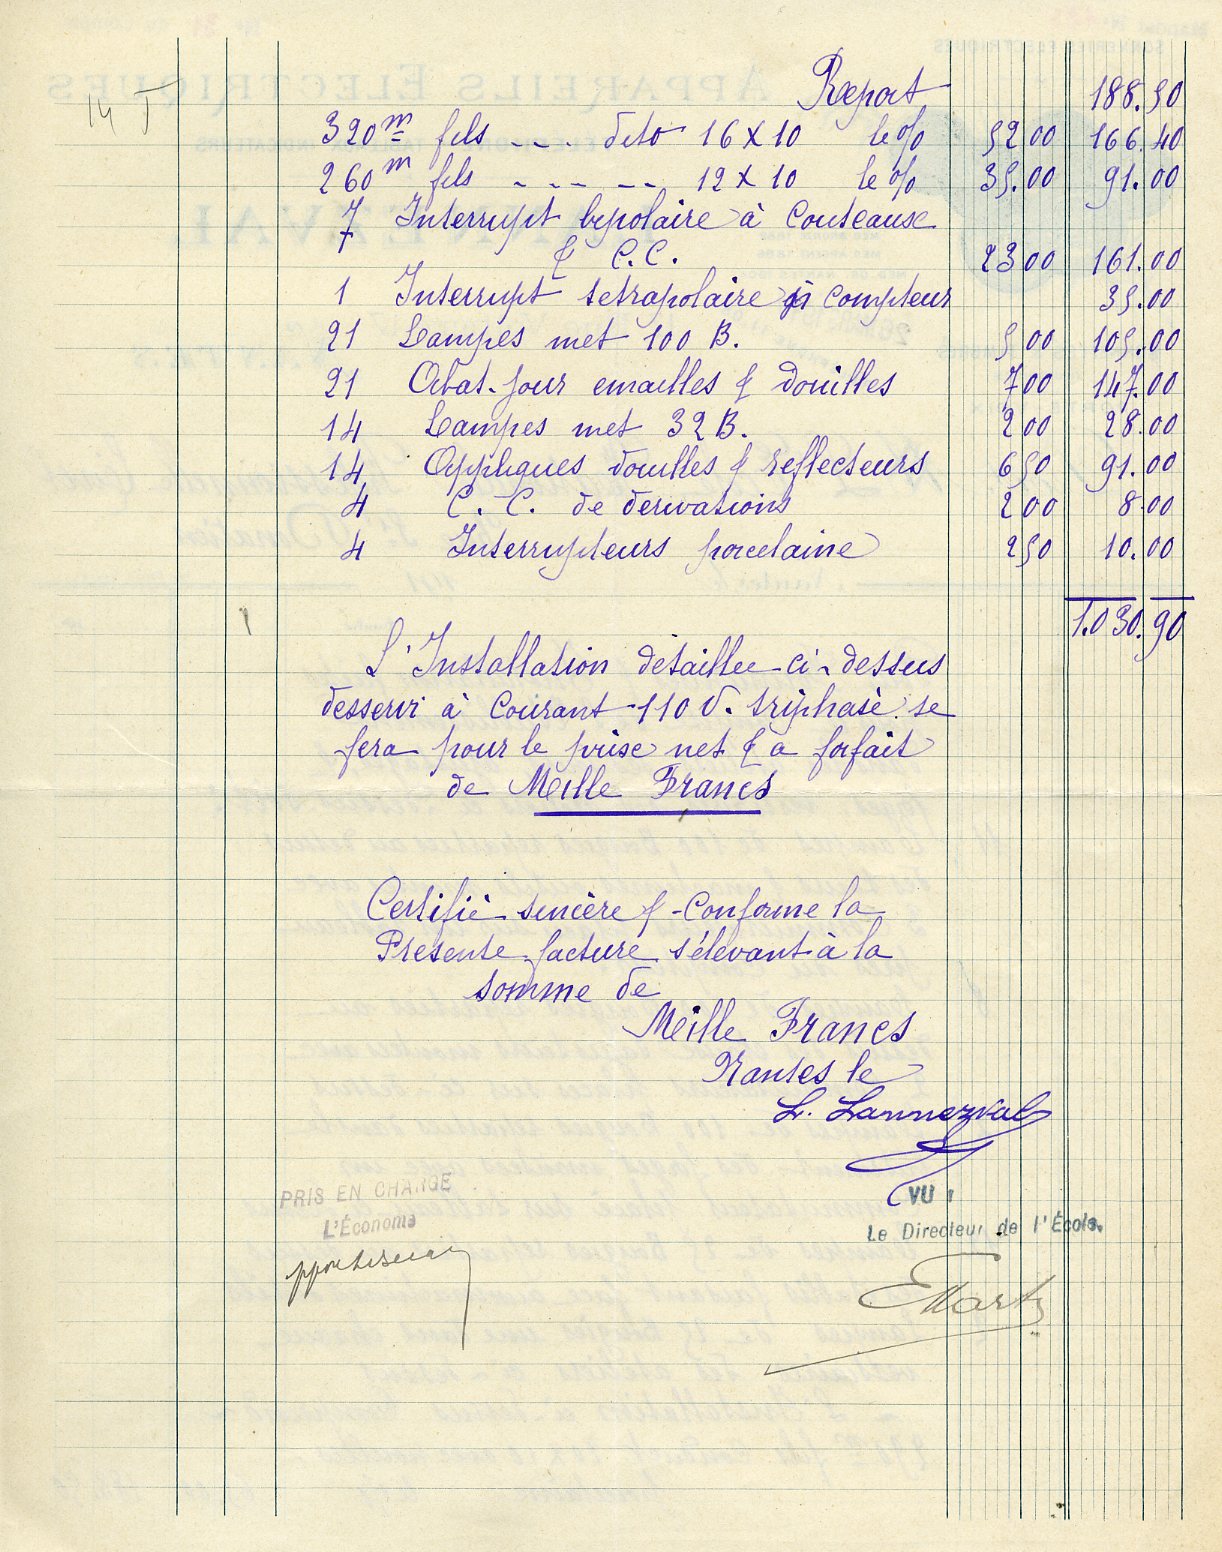 Report 188.50
14 V
320m fils - - - dito 16 x 10 le % 52 00 166.40
260m fils - - - - - 12 x 10 le % 35.00 91.00
7 Interrupt bipolaire à Couteaux
& C.C. 23 00 161.00
1 Interrupt tetrapolaire à compteur 35.00
21 Lampes met 100 B. 5 00 105.00
21 Abat-jour emailles & douilles 7 00 147.00
14 Lampes met 32 B. 2 00 28.00
14 Appliques douilles & reflecteurs 6 50 91.00
4 C. C. de derivations 2 00 8.00
4 Interrupteurs porcelaine 2 50 10.00
1.030.90
L'Installation détaillée ci-dessus
desservi à Courant 110 V. triphasé se
fera pour le prise net & a forfait
de Meille Francs
Certifié sincère & Conforme la
Presente facture s'élevant à la
somme de
Meille Francs
Nantes le
L. Lannezval
VU
PRIS EN CHARGE
L'Économe
Le Directeur de l'École.